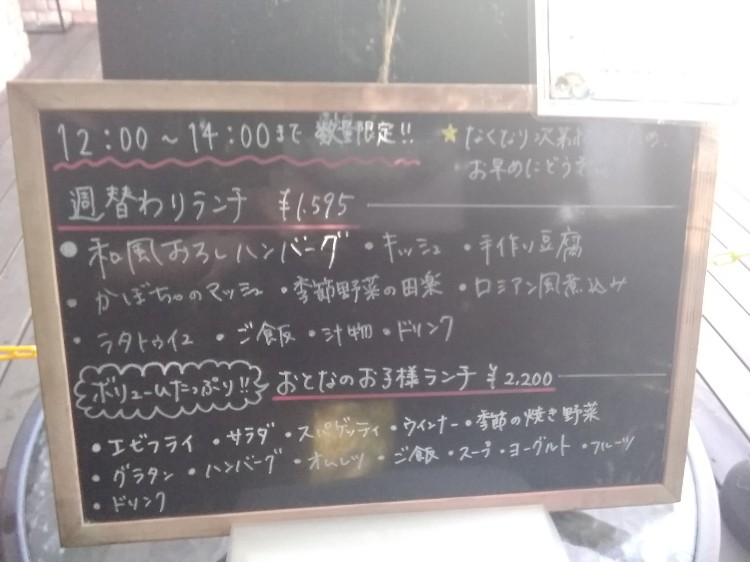 12:00～14:00まで 数量限定!!
★なくなり次第
お早めにどうぞ
週替わりランチ ¥1,595
●和風おろしハンバーグ ・キッシュ ・手作り豆腐
・かぼちゃのマッシュ ・季節野菜の田楽 ・ロシアン風煮込み
・ラタトゥイユ ・ご飯 ・汁物 ・ドリンク
ボリュームたっぷり!! おとなのお子様ランチ ¥2,200
・エビフライ ・サラダ ・スパゲッティ ・ウインナー ・季節の焼き野菜
・グラタン ・ハンバーグ ・オムレツ ・ご飯 ・スープ ・ヨーグルト ・フルーツ
・ドリンク